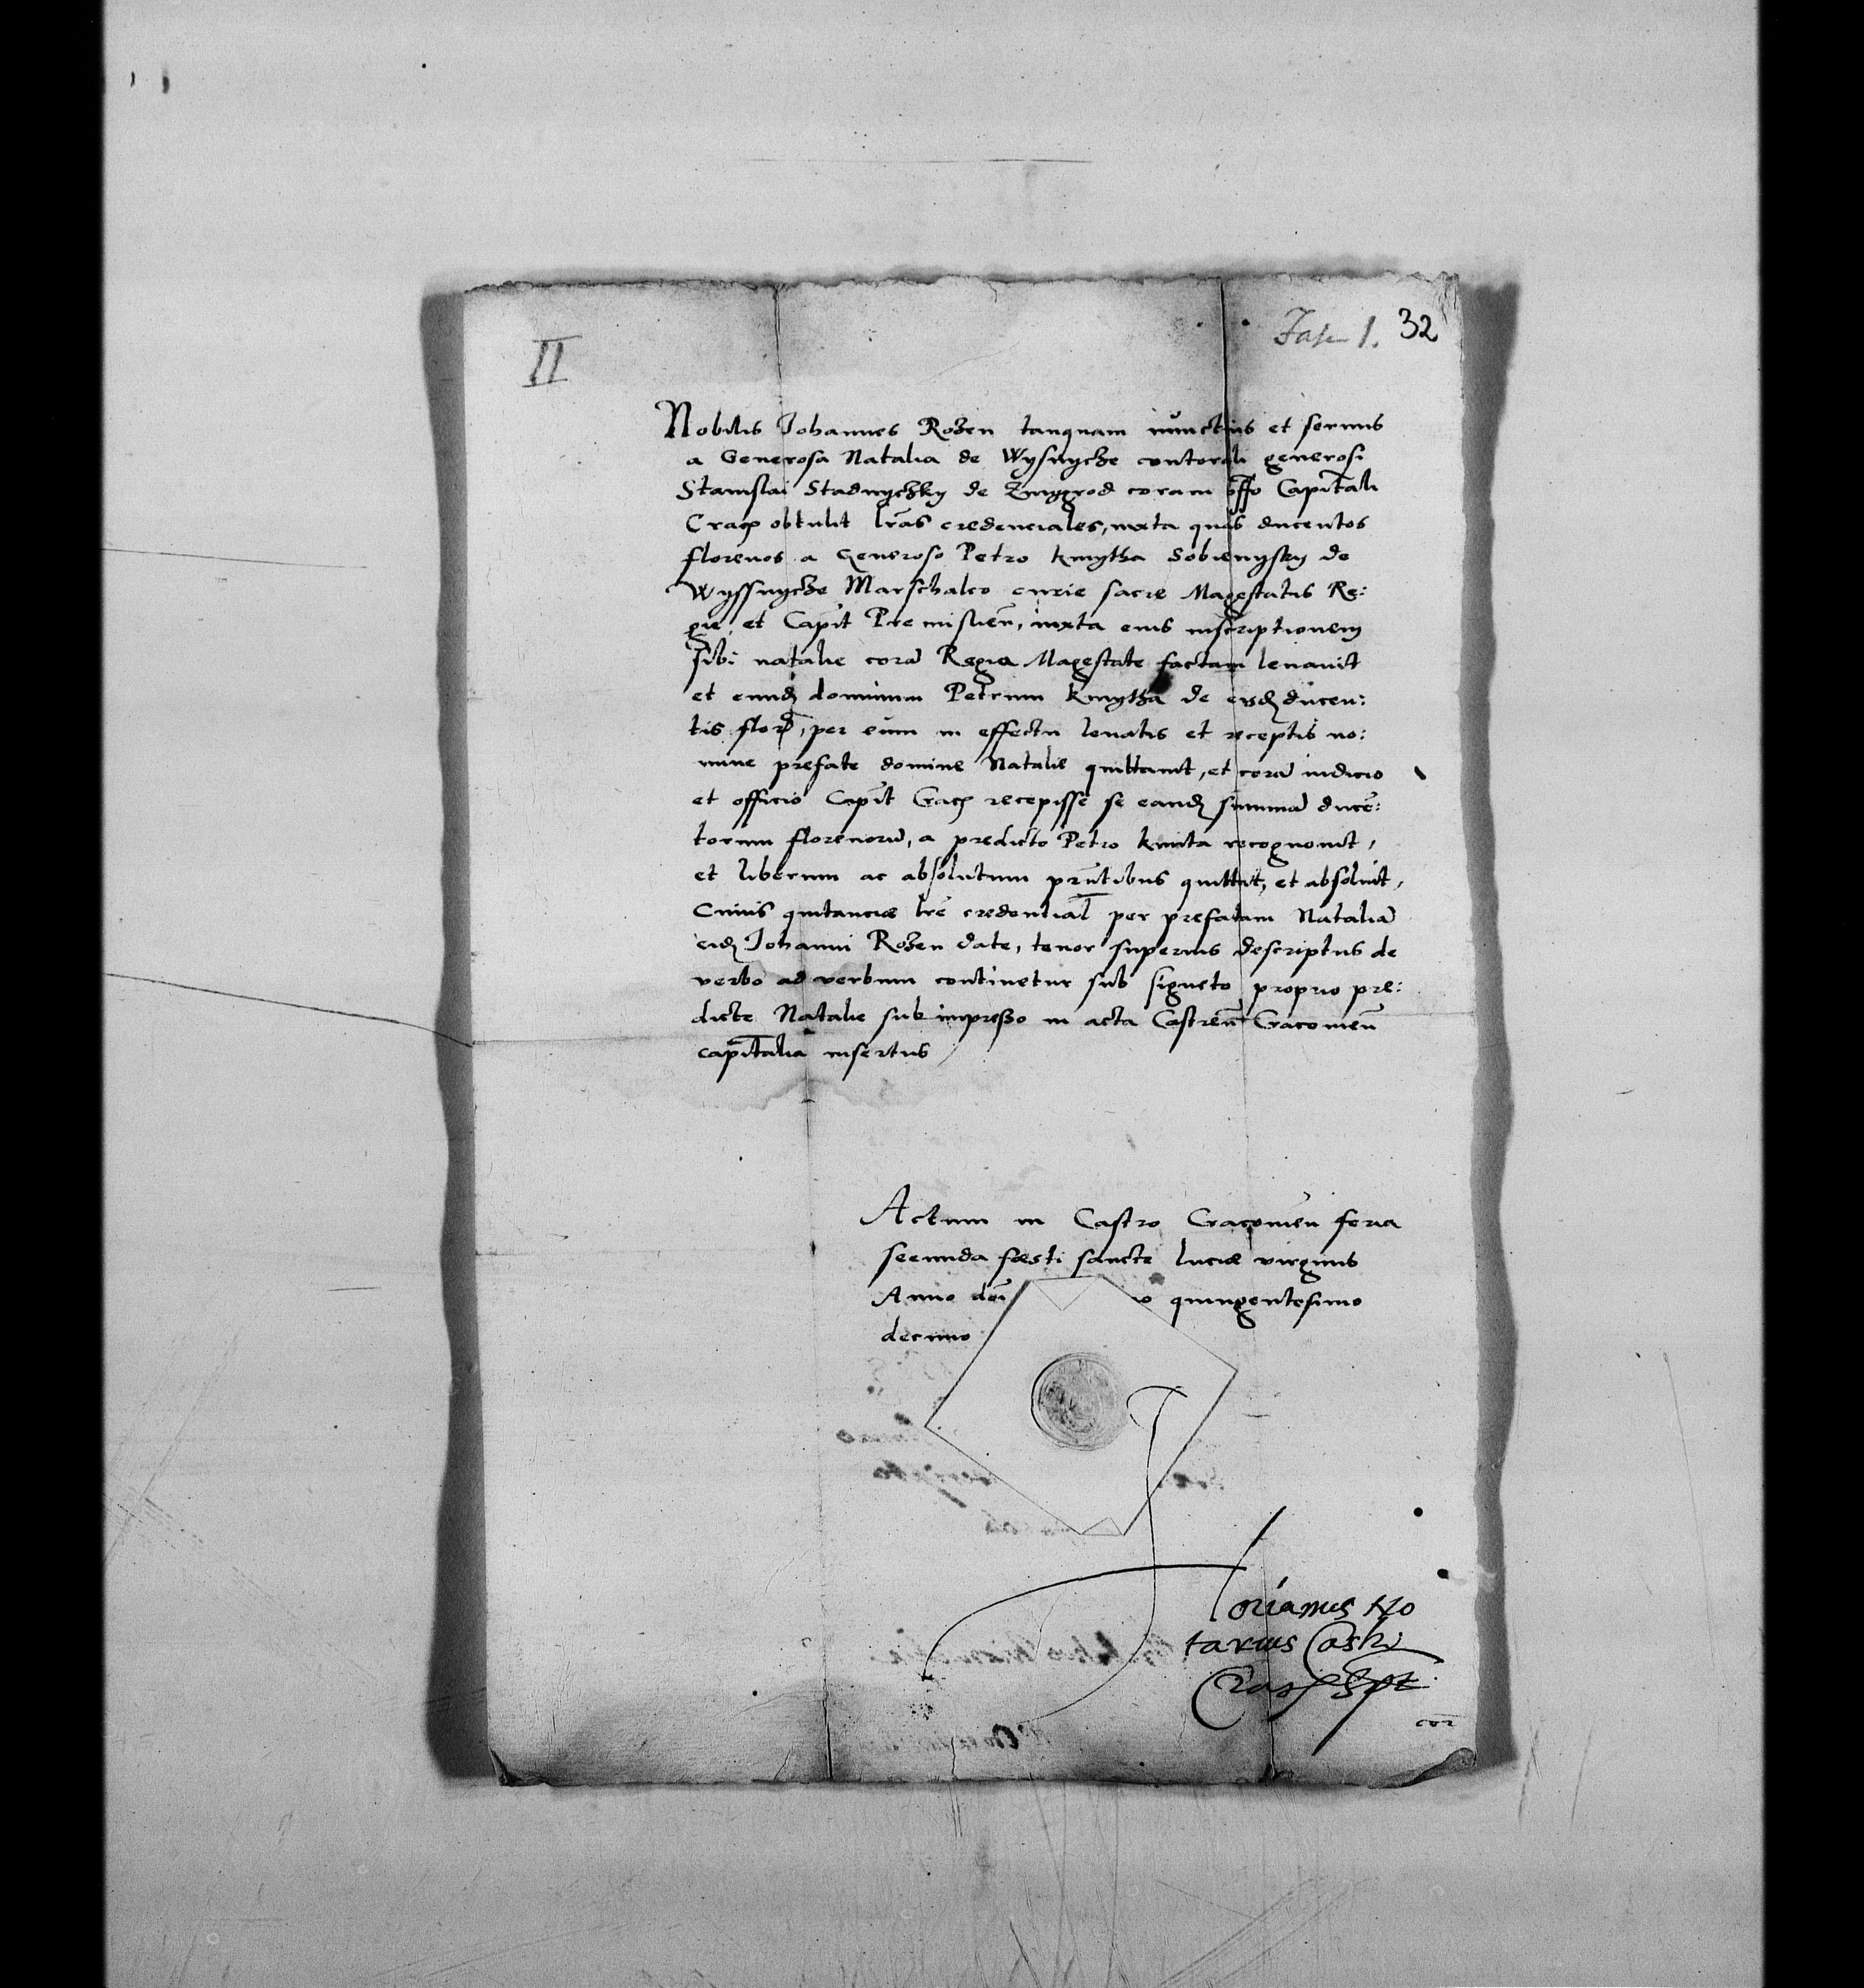 II
Fasc 1. 32
Nobilis Johannes Rozen tanquam nunctius et servus
a Generosa Natalia de Wysnycze contorali generosi
Stanislai Stadnyczky de Zmygrod coram offo Capitali
Crac obtulit lras credenciales, iuxta quas ducentos
florenos a Generoso Petro Kmytha Sobienysky de
Wyssnycze Marschalco curie sacre Magestatis Re:
gie, et Capit Premislien, iuxta eius inscriptionem
sibi natalie cora Regia Magestate factam levavit
et eund dominum Petrum Kmytha de eisd ducen:
tis flor, per eum in effectu levatis et receptis no:
mine prefate domine Natalie quittavit, et cora iudicio
et officio Capit Crac recepisse se eand summa duce:
torum florenoru, a predicto Petro Kmita recognovit,
et liberum ac absolutum prntibus quittat, et absolvit,
Cuius quitanciæ lre credential per prefatam Natalia
eid Johanni Rozen date, tenor superius descriptus de
verbo ad verbum continetur sub signeto proprio pre:
dicte Natalie sub impresso in acta Castren Cracovien
capitalia insertus
Actum in Castro Cracovien feria
secunda festi sancte luciæ virginis
Anno dni quingentesimo
decimo
Florianus No
tarius Castri
Crac Spt